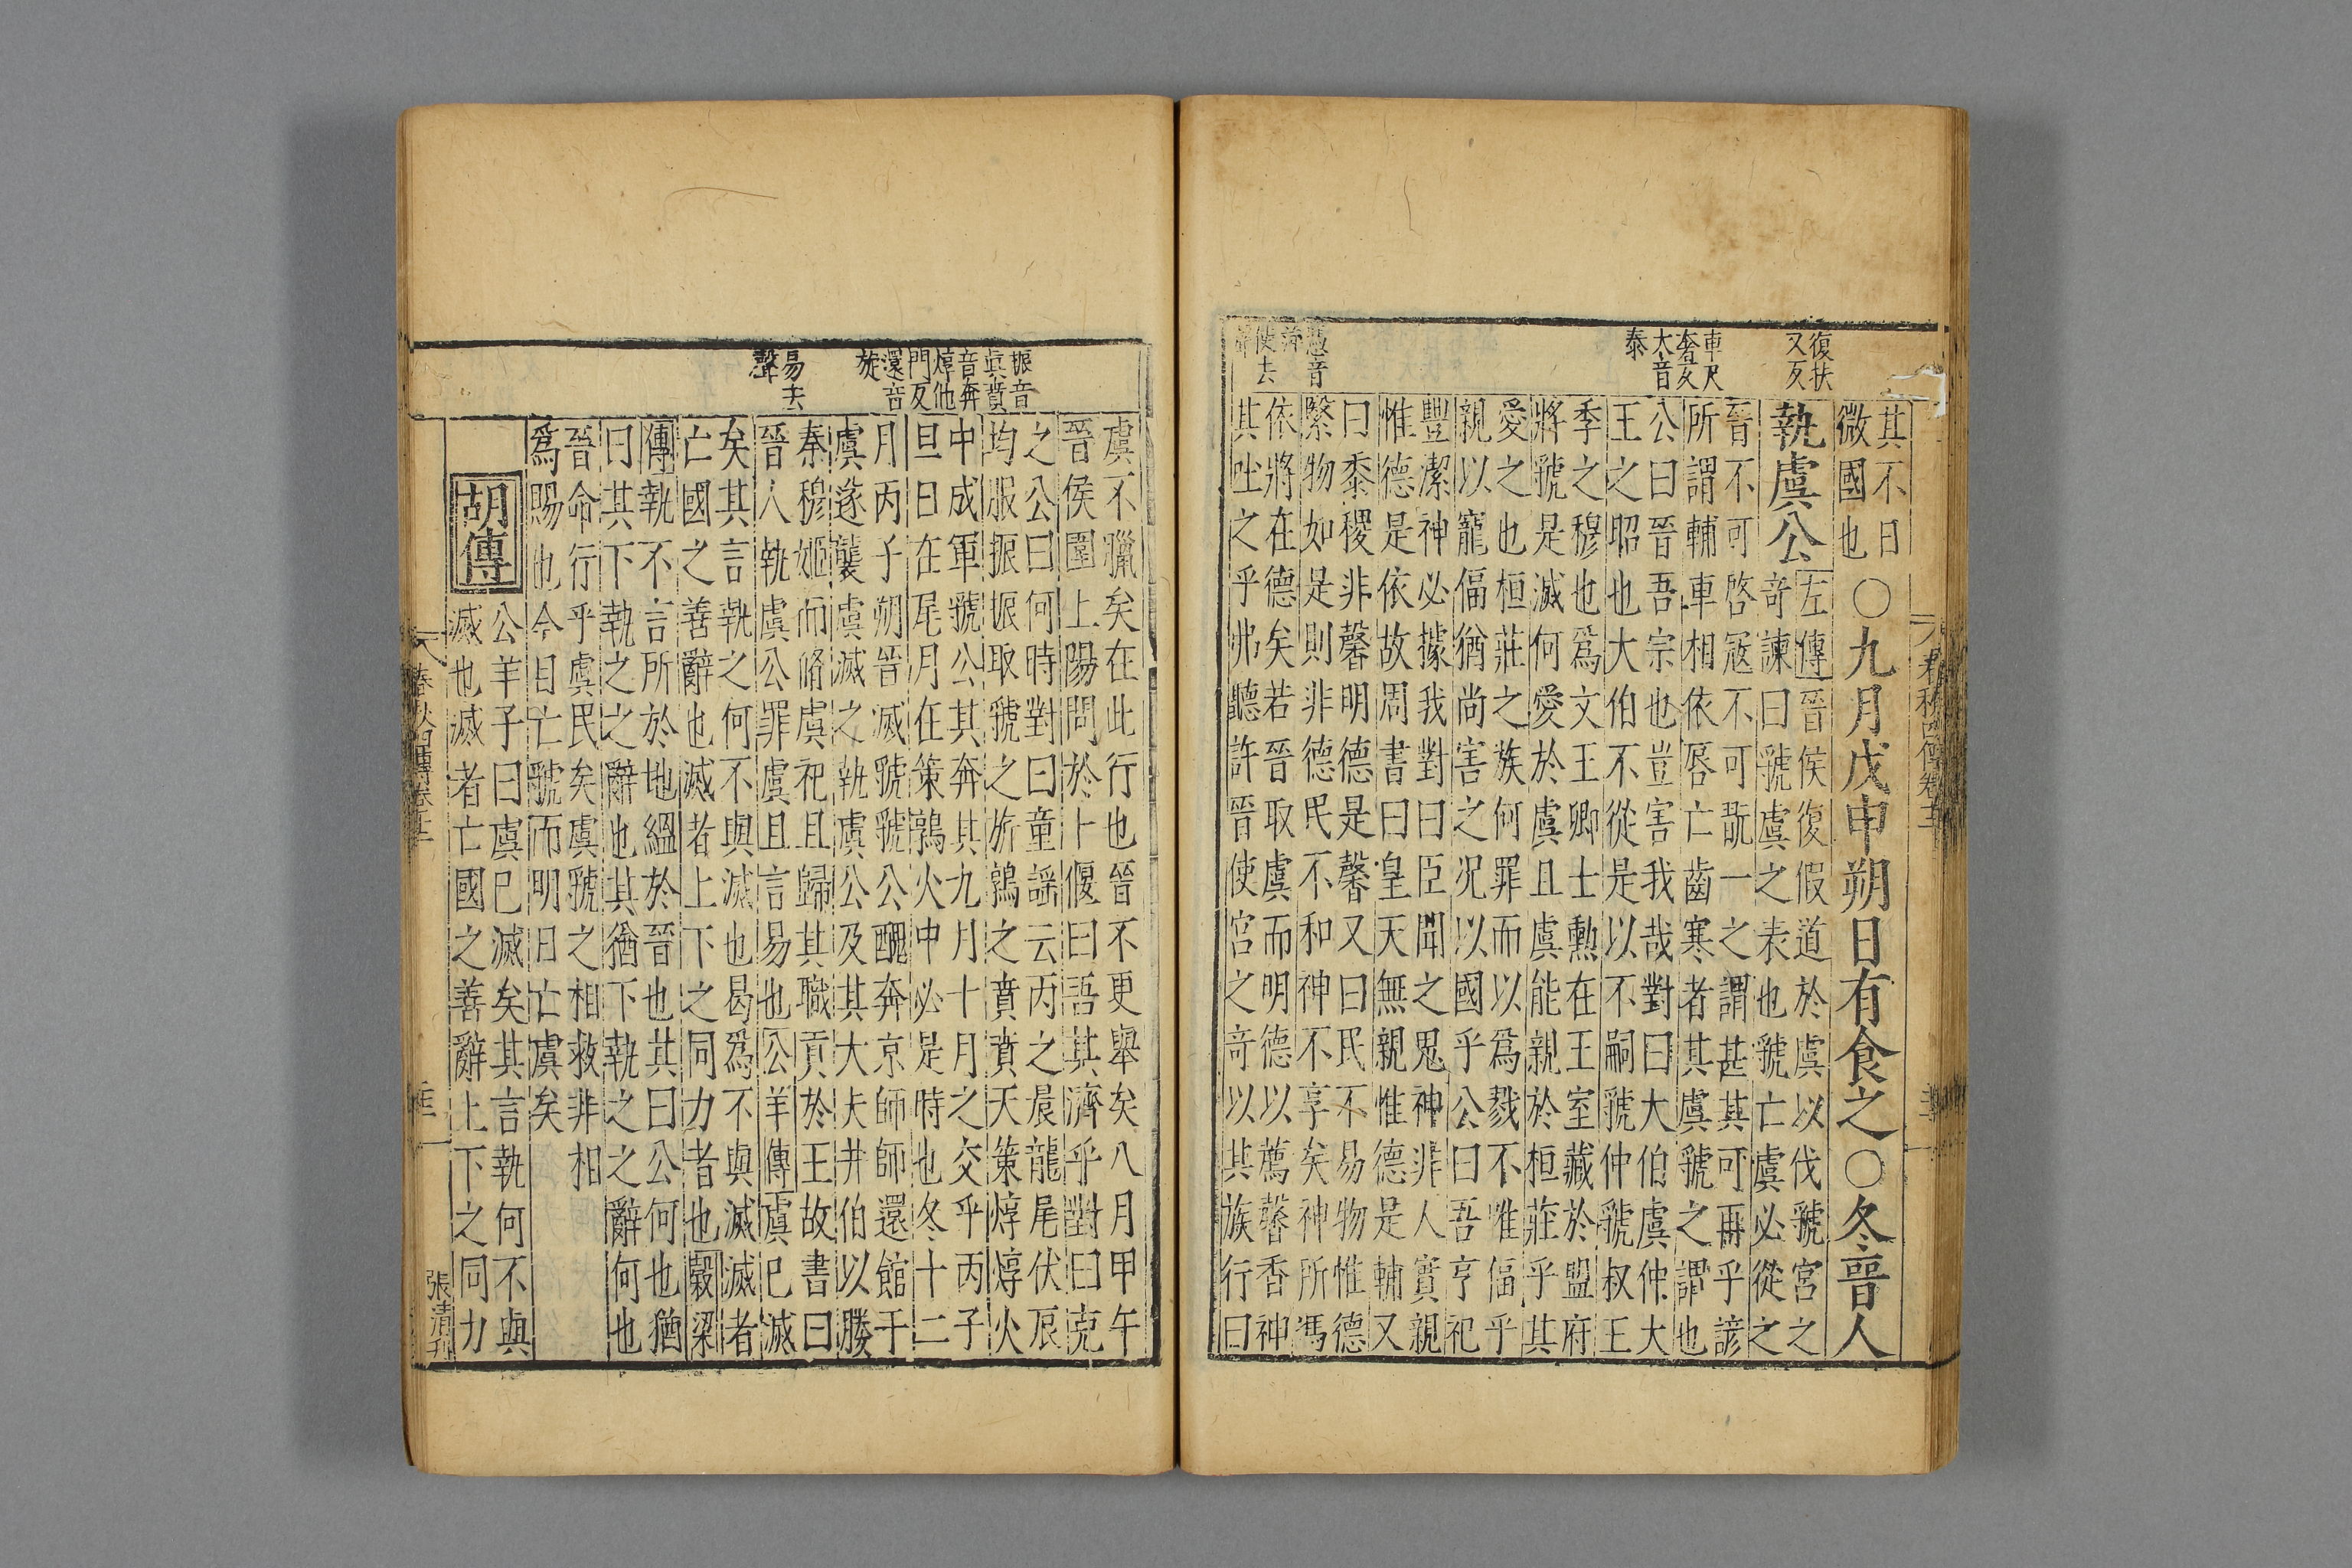 復扶
又反
車尺
奢反
大音
泰
使去
其不日
微國也
○九月戊申朔日有食之○冬晉人
執虞公
左傳晉侯復假道於虞以伐虢宮之
奇諫曰虢虞之表也虢亡虞必從之
晉不可啓寇不可翫一之謂甚其可再乎諺
所謂輔車相依唇亡齒寒者其虞虢之謂也
公曰晉吾宗也豈害我哉對曰大伯虞仲大
王之昭也大伯不從是以不嗣虢仲虢叔王
季之穆也爲文王卿士勲在王室藏於盟府
將虢是滅何愛於虞且虞能親於桓莊乎其
愛之也桓莊之族何罪而以爲戮不唯偪乎
親以寵偪猶尚害之況以國乎公曰吾亨祀
豐潔神必據我對曰臣聞之鬼神非人實親
惟德是依故周書曰皇天無親惟德是輔又
曰黍稷非馨明德是馨又曰民不易物惟德
繄物如是則非德民不和神不享矣神所馮
依將在德矣若晉取虞而明德以薦馨香神
其吐之乎弗聽許晉使宮之奇以其族行曰
振音
眞賁
音奔
焞他
門反
還音
旋
易去
聲
虞不臘矣在此行也晉不更舉矣八月甲午
晉侯圍上陽問於卜偃曰吾其濟乎對曰克
之公曰何時對曰童謡云丙之晨龍尾伏辰
均服振振取虢之旂鶉之賁賁天策焞焞火
中成軍虢公其奔其九月十月之交乎丙子
旦日在尾月在策鶉火中必是時也冬十二
月丙子朔晉滅虢虢公醜奔京師師還館于
虞遂襲虞滅之執虞公及其大夫井伯以勝
秦穆姬而脩虞祀且歸其職貢於王故書曰
晉人執虞公罪虞且言易也公羊傳虞已滅
矣其言執之何不與滅也曷爲不與滅滅者
亡國之善辭也滅者上下之同力者也穀梁
傳執不言所於地緼於晉也其曰公何也猶
曰其下執之之辭也其猶下執之之辭何也
晉命行乎虞民矣虞虢之相救非相
爲賜也今日亡虢而明日亡虞矣
胡傳
公羊子曰虞已滅矣其言執何不與
滅也滅者亡國之善辭上下之同力
春秋四傳卷十二
張清刊